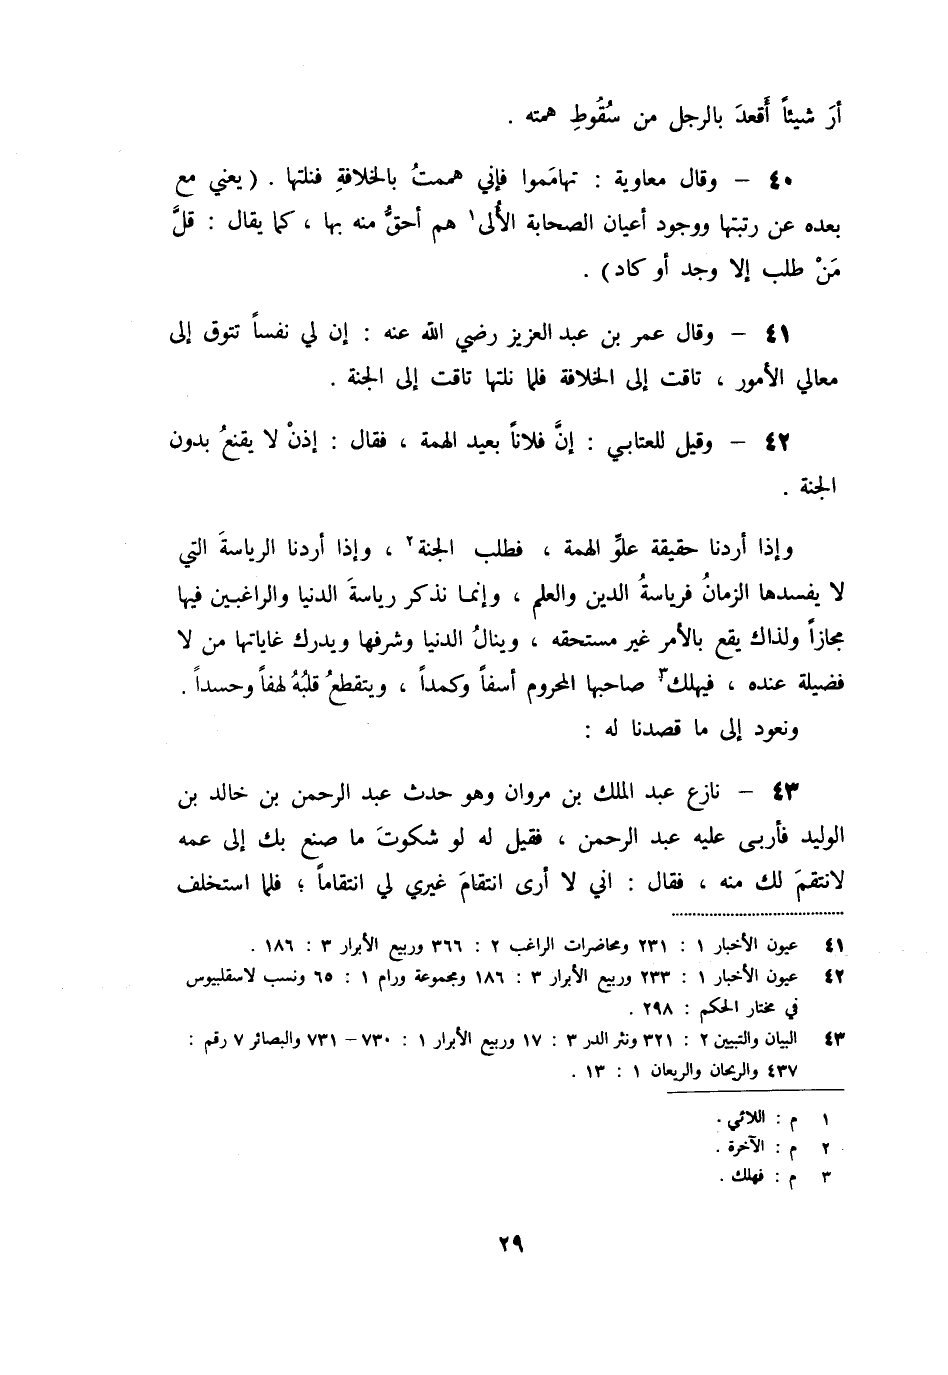 أرَ شيئاً أَقعدَ بالرجل من سُقُوطِ همته .
٤٠ – وقال معاوية : تهامَموا فإني هممتُ بالخلافةِ فنلتها . ( يعني مع
بعده عن رتبتها ووجود أعيان الصحابة الأُلى١ هم أحقُّ منه بها ، كما يقال : قلَّ
مَنْ طلب إلا وجد أو كاد ) .
٤١ – وقال عمر بن عبد العزيز رضي الله عنه : إن لي نفساً تتوق إلى
معالي الأمور ، تاقت إلى الخلافة فلما نلتها تاقت إلى الجنة .
٤٢ – وقيل للعتابي : إنَّ فلاناً بعيد الهمة ، فقال : إذنْ لا يقنعُ بدون
الجنة .
وإذا أردنا حقيقة علوِّ الهمة ، فطلب الجنة٢ ، وإذا أردنا الرياسةَ التي
لا يفسدها الزمانُ فرياسةُ الدين والعلم ، وإنما نذكر رياسةَ الدنيا والراغبين فيها
مجازاً ولذاك يقع بالأمر غير مستحقه ، وينالُ الدنيا وشرفها ويدرك غاياتها من لا
فضيلة عنده ، فيهلك٣ صاحبها المحروم أسفاً وكمداً ، ويتقطعُ قلبُهُ لهفاً وحسداً .
ونعود إلى ما قصدنا له :
٤٣ – نازع عبد الملك بن مروان وهو حدث عبد الرحمن بن خالد بن
الوليد فأربى عليه عبد الرحمن ، فقيل له لو شكوتَ ما صنع بك إلى عمه
لانتقمَ لك منه ، فقال : اني لا أرى انتقامَ غيري لي انتقاماً ؛ فلما استخلف
٤١ عيون الأخبار ١ : ٢٣١ ومحاضرات الراغب ٢ : ٣٦٦ وربيع الأبرار ٣ : ١٨٦ .
٤٢ عيون الأخبار ١ : ٢٣٣ وربيع الأبرار ٣ : ١٨٦ ومجموعة ورام ١ : ٦٥ ونسب لاسقلبيوس
في مختار الحكم : ٢٩٨ .
٤٣ البيان والتبيين ٢ : ٣٢١ ونثر الدر ٣ : ١٧ وربيع الأبرار ١ : ٧٣٠ – ٧٣١ والبصائر ٧ رقم :
٤٣٧ والريحان والريعان ١ : ١٣ .
١ م : اللائي .
٢ م : الآخرة .
٣ م : فهلك .
٢٩